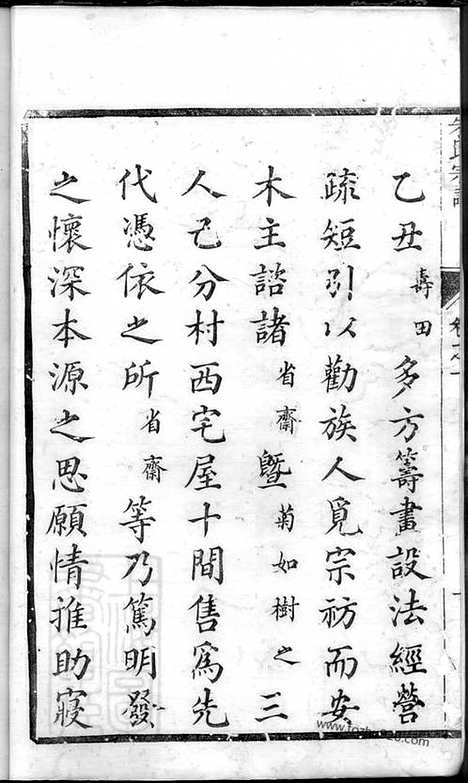 乙丑壽田多方籌畫設法經營
疏短引以勸族人覓宗祊而安
木主諮諸省齋曁菊如樹之三
人己分村西宅屋十間售爲先
代憑依之所省齋等乃篤明發
之懷深本源之思願情推助寢